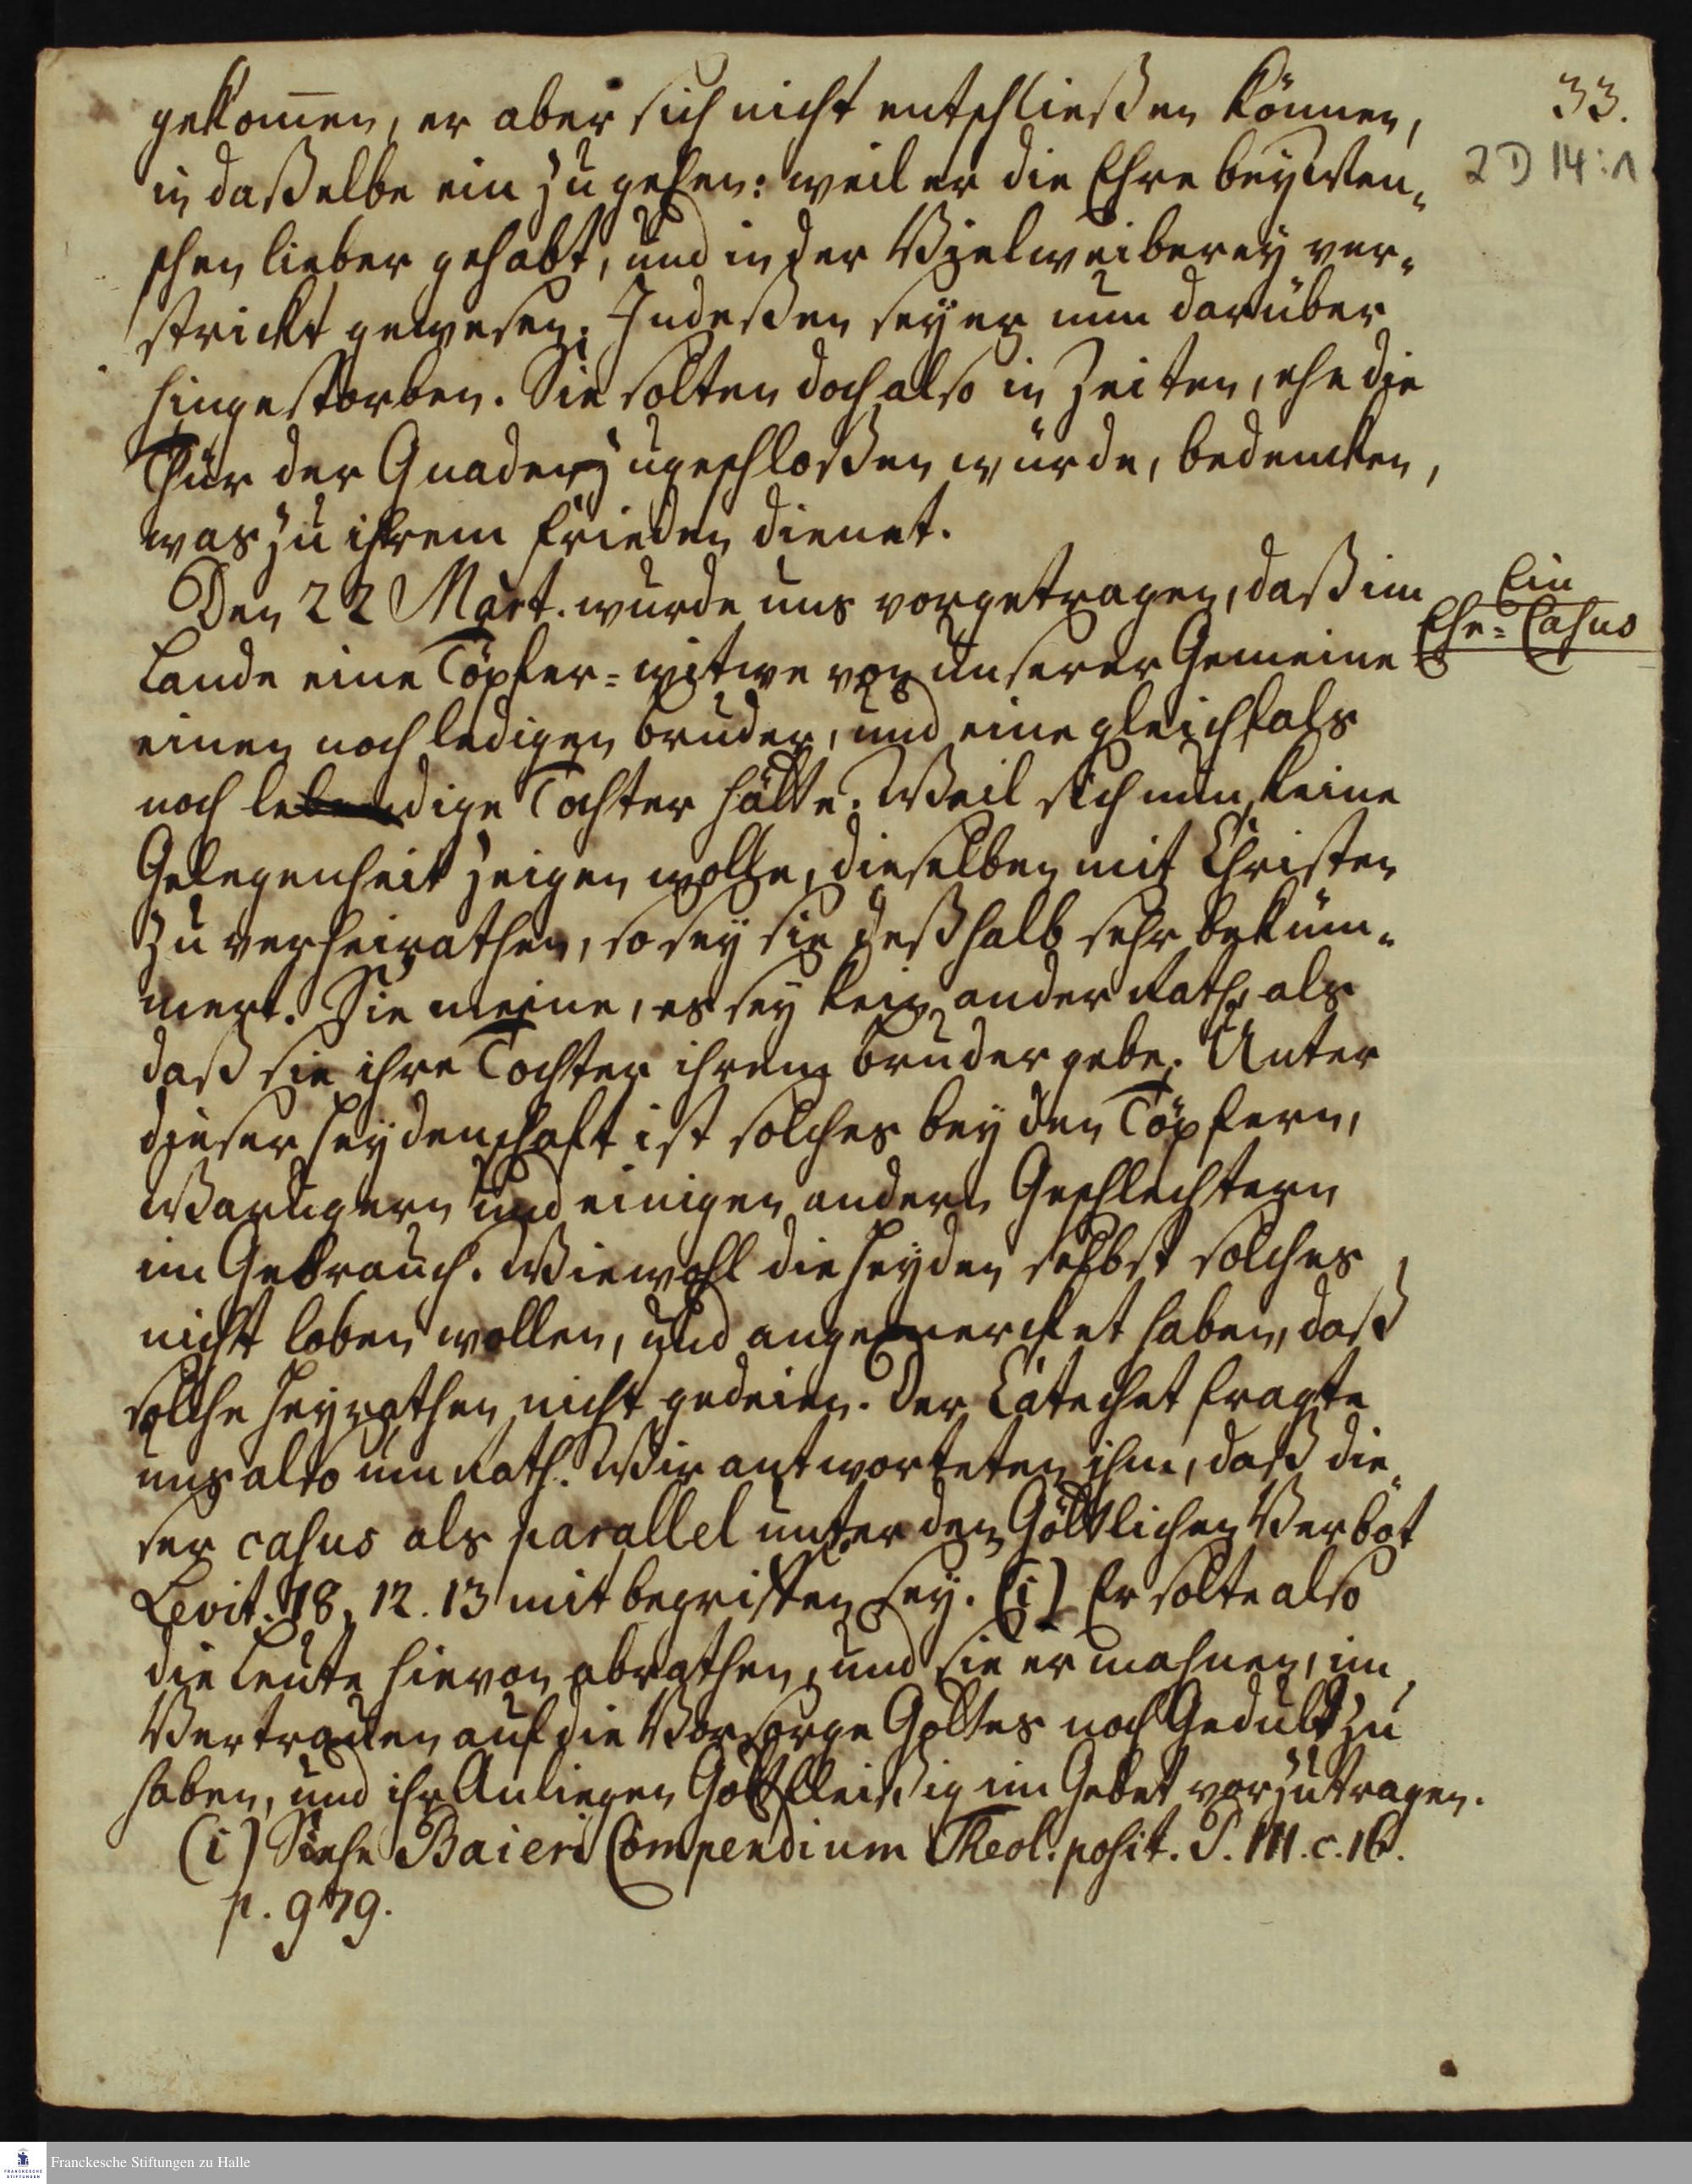 33.
2D 14:1
gekom̅en, er aber sich nicht entschließen können,
in daßelbe ein zu gehen: weil er die Ehre bey Men-
schen lieber gehabt, und in der Vielweiberey ver-
strickt gewesen. Indeßen sey er nun darüber
hingestorben. Sie solten doch also in Zeiten, ehe die
Thür der Gnaden zugeschloßen würde, bedencken,
was zu ihrem Frieden dienet.
Den 22 Mart. wurde uns vorgetragen, daß im
Ein
Ehe-Casus
Lande eine Töpfer-witwe von unserer Gemeine
einen noch ledigen Bruder, und eine gleichfals
noch ledige Tochter hätte. Weil sich nun keine
Gelegenheit zeigen wolle, dieselben mit Christen
zu verheirathen, so sey sie deßhalb sehr beküm-
mert. Sie meine, es sey kein ander Rath, als
daß sie ihre Tochter ihrem Bruder gebe. Unter
dieser Heydenschaft ist solches bey den Töpfern,
Warugern und einigen andern Geschlechtern
im Gebrauch. Wiewohl die Heyden selbst solches
nicht loben wollen, und angemercket haben, daß
solche Heyrathen nicht gedeien. Der Catechet fragte
uns also um Rath. Wir antworteten ihm, daß die-
ser casus als parallel unter den Göttlichen Verbot
Levit. 18, 12. 13 mit begriffen sey. (i) Er solte also
die Leute hievon abrathen, und sie ermahnen, im
Vertrauen auf die Vorsorge Gottes noch Gedult zu
haben, und ihr Anliegen Gott fleißig im Gebet vorzutragen.
(i) Siehe Baieri Compendium Theol. posit. P. III. c. 16.
p. 979.
Franckesche Stiftungen zu Halle
FRANCKESCHE
STIFTUNGEN